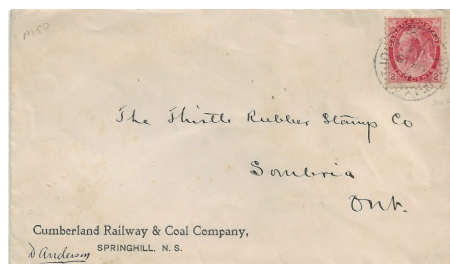 1150
CANADA POSTAGE
2 CENTS 2
The Thistle Rubber Stamp Co
Sombria
Ont.
Cumberland Railway & Coal Company,
SPRINGHILL, N. S.
D Anderson